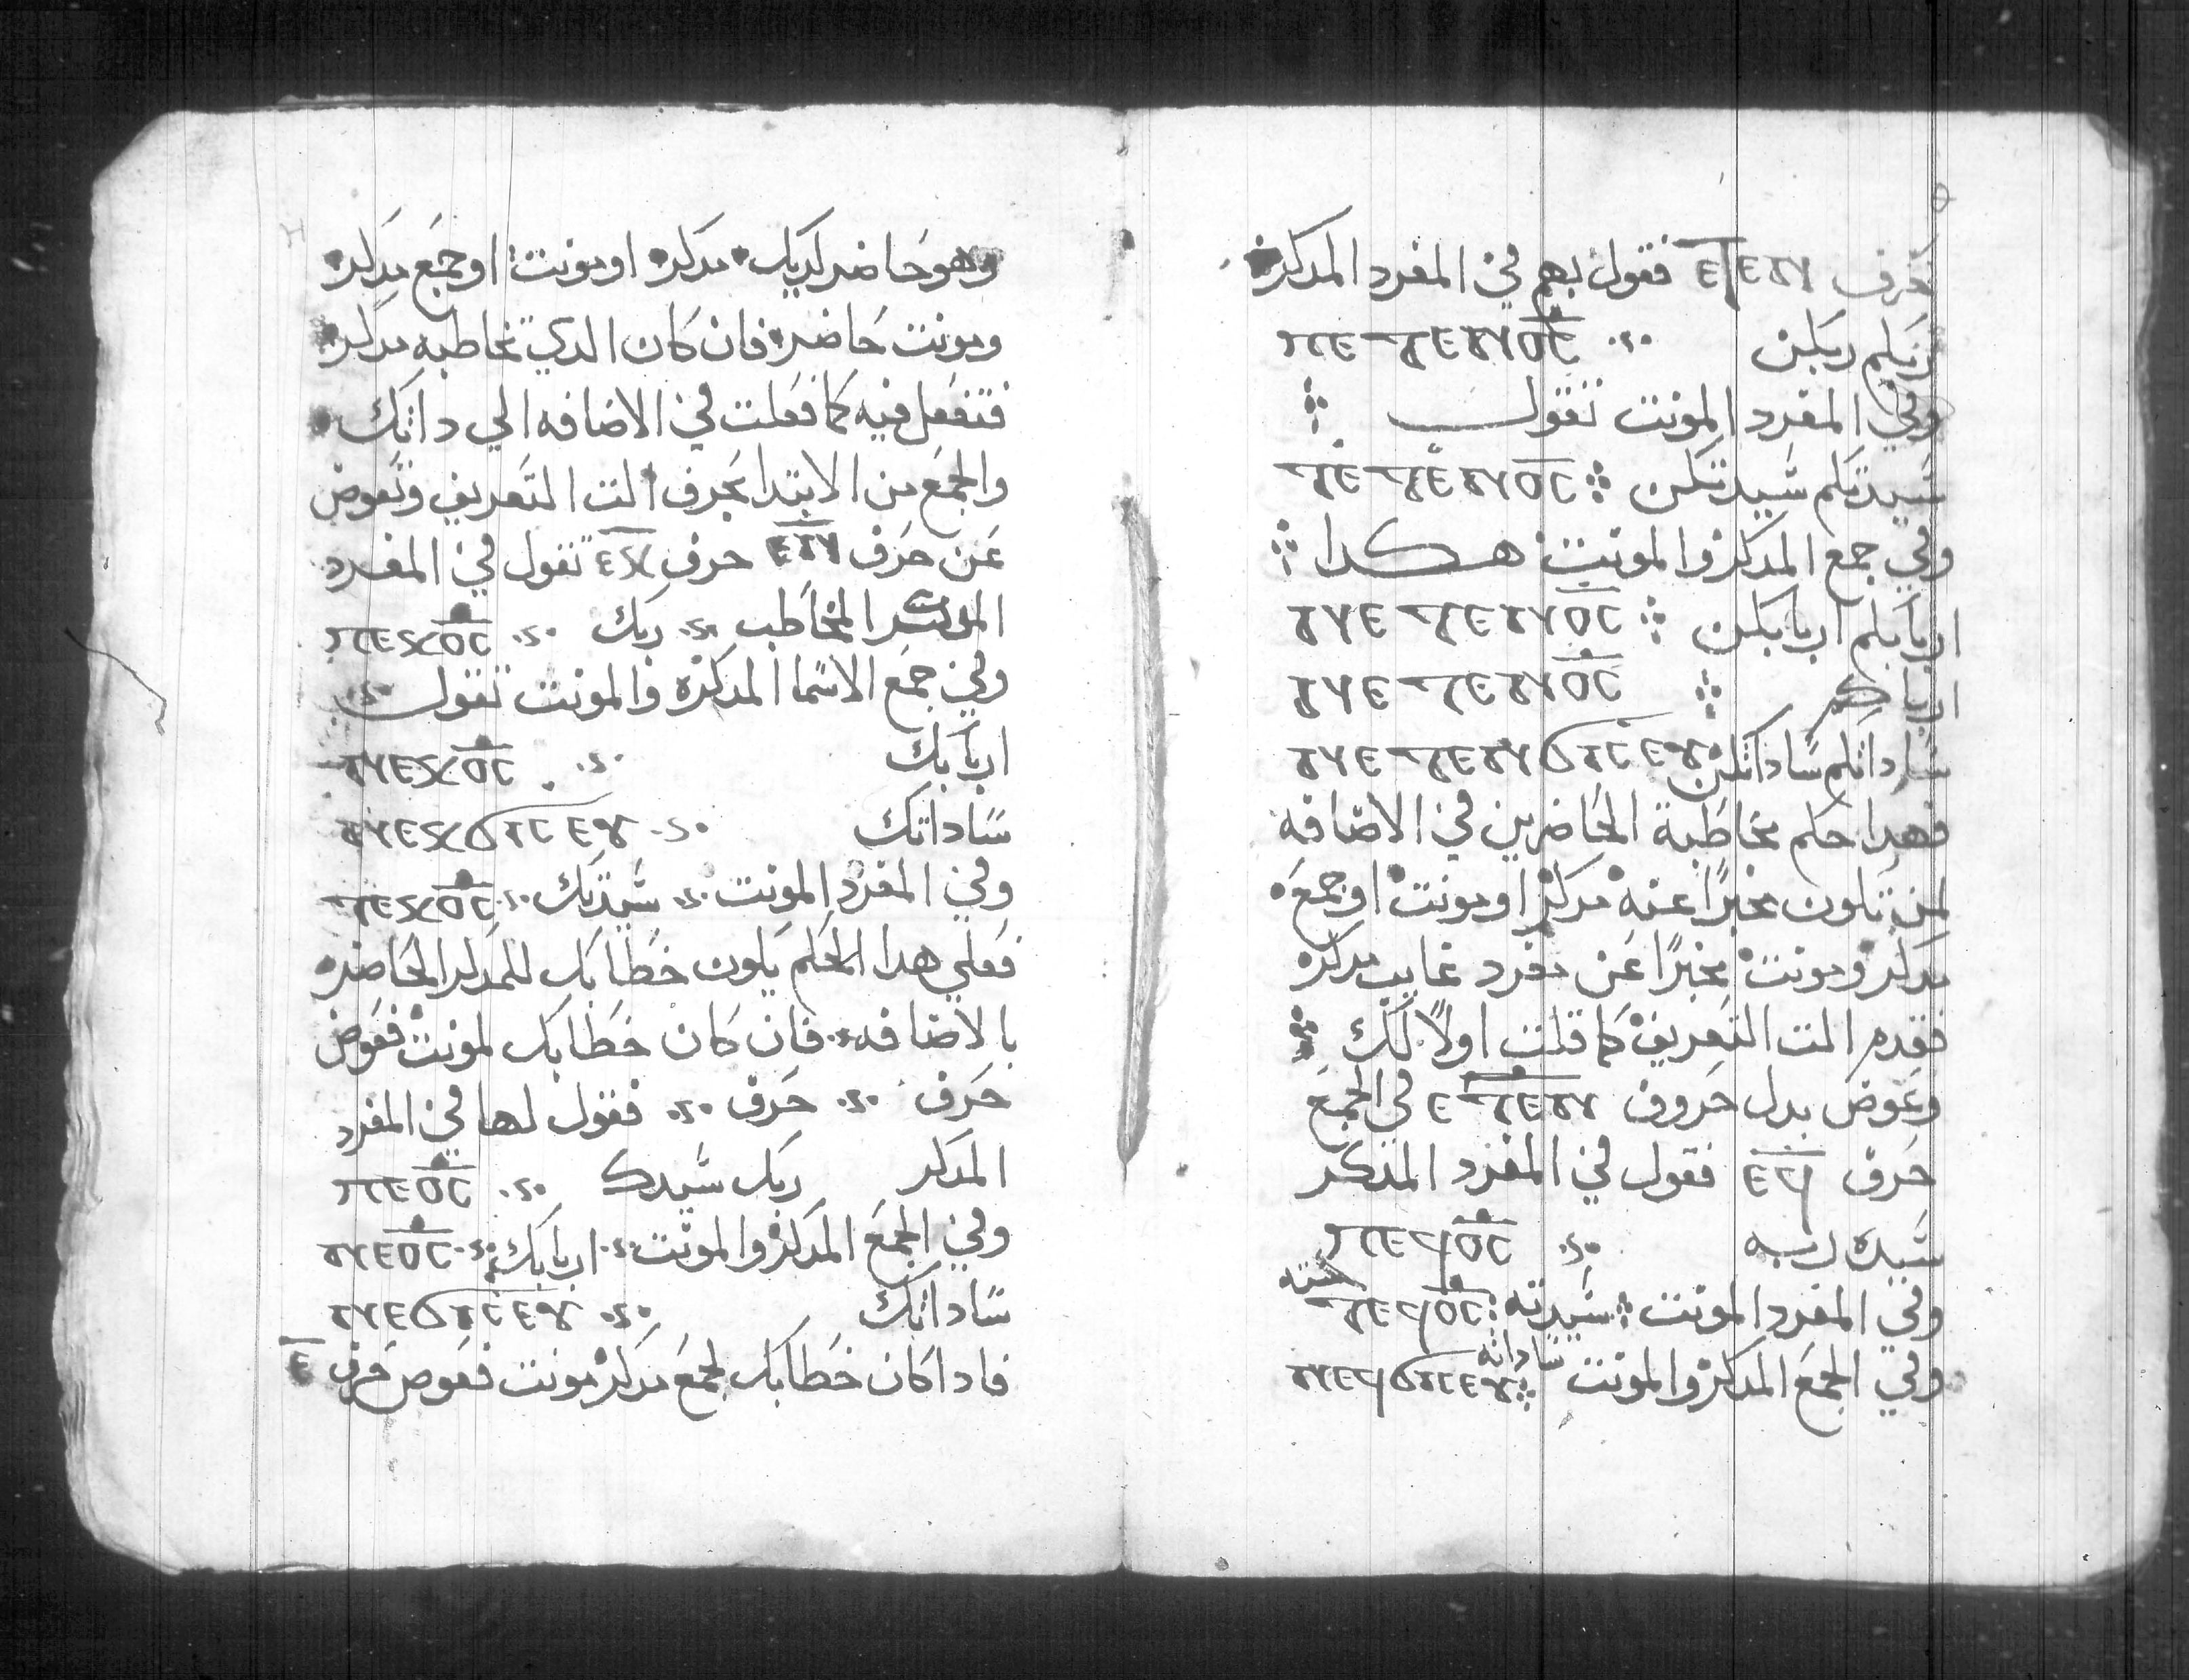 حرف ⲉⲧⲉⲛ فقول بهم في المفرد المدكر
ربكم ربكن ⲡⲉⲧⲉⲛϭⲥ
وفي المفرد المونت تقول
سيدتكم سيدتكن ⲧⲉⲧⲉⲛϭⲥ
وفي جمع المدكر والمونت هكدا
اربابكم اربابكن ⲛⲉⲧⲉⲛϭⲥ
ⲛⲉⲧⲉⲛϭⲥ
ساداتكم ساداتكن ⲛⲉⲧⲉⲛϭⲓⲥⲉⲩ
فهدا حكم مخاطبة الحاضرين في الاضافه
لمن تكون مخبرًا عنه مدكر او مونت او جمع
مدكر ومونت مخبرًا عن مفرد غايب مدكر
فقدم الت التعريف كما قلت اولاً لك
وعوض بدل حروف ⲉⲧⲉⲛ في الجمع
حرف ⲉϥ فقول في المفرد المدكر
سيده ربه ⲡⲉϥϭⲥ
وفي المفرد المونت سيدته ⲧⲉϥϭⲥ
وفي الجمع المدكر والمونت ساداته ⲛⲉϥϭⲓⲥⲉⲩ
وهو حاضر لديك مدكر او مونت او جمع مدكر
ومونت حاضر فان كان الدي تخاطبه مدكر
فتفعل فيه كما فعلت في الاضافه الي داتك
والجمع من الابتدا بحرف الت التعريف وتعوض
عن حرف حرف ⲉⲕ تقول في المفرد
المدكر المخاطب ربك ⲡⲉⲕϭⲥ
وفي جمع الاسما المدكره والمونت تقول
اربابك ⲛⲉⲕϭⲥ
ساداتك ⲛⲉⲕϭⲓⲥⲉⲩ
وفي المفرد المونت سيدتك ⲧⲉⲕϭⲥ
فعلي هدا الحكم يكون خطابك للمدكر الحاضر
بالاضافه فان كان خطابك لمونت فعوض
حرف حرف فقول لها في المفرد
المدكر ربك سيدك ⲡⲉϭⲥ
وفي الجمع المدكر والمونت اربابك ⲛⲉϭⲥ
ساداتك ⲛⲉϭⲓⲥⲉⲩ
فاداكان خطابك لجمع مدكر مونت فعوض حرف ⲉ